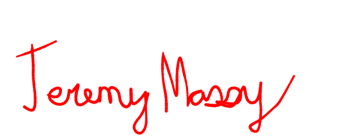 Jeremy Massy